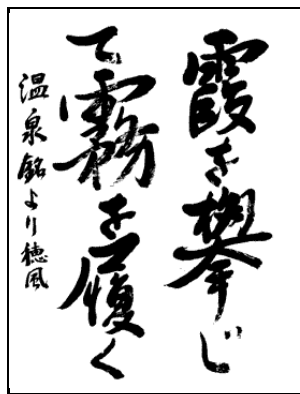 霞を攀じ
て霧を履く
温泉銘より穂風